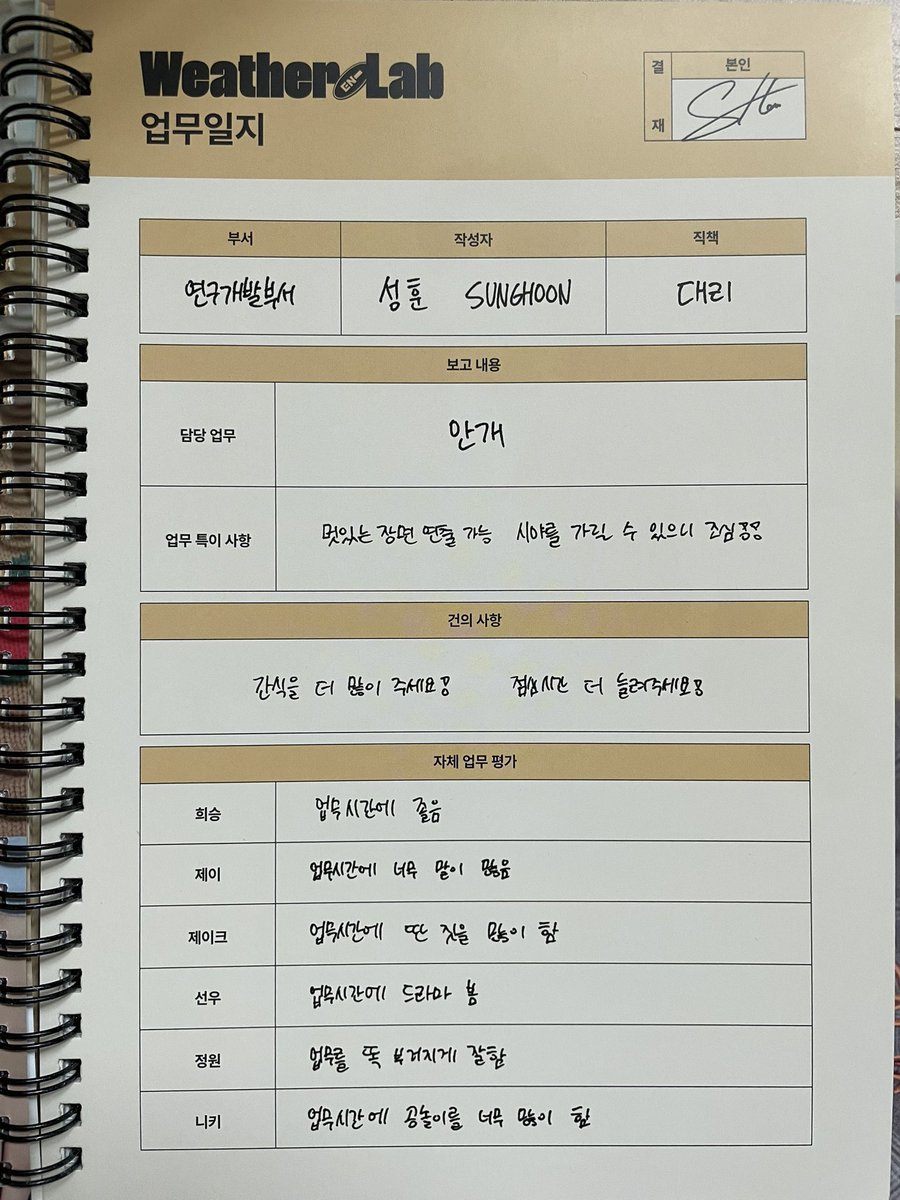 Weather EN- Lab
업무일지
결재
본인
부서 작성자 직책
연구개발부서 성훈 SUNGHOON 대리
보고 내용
담당 업무 안개
업무 특이 사항 멋있는 장면 연출 가능 시야를 가릴 수 있으니 조심용용
건의 사항
간식을 더 많이 주세요용 점심시간 더 늘려주세요용
자체 업무 평가
희승 업무시간에 졸음
제이 업무시간에 너무 말이 많음
제이크 업무시간에 딴 짓을 많이 함
선우 업무시간에 드라마 봄
정원 업무를 똑 부러지게 잘함
니키 업무시간에 공놀이를 너무 많이 함